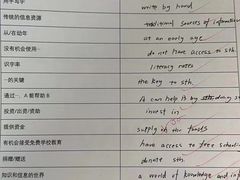 用手写字 write by hand
传统的信息资源 traditional sources of information
从/在幼年 at an early age
没有机会使用… do not have access to sth
识字率 literacy rates
…的关键 the key to sth.
通过…A能帮助B A can help B by doing s
投资/出资/资助 invest in
提供资金 supply the funds
有机会接受免费学校教育 have access to free schooling
捐赠/赠送 donate sth.
知识和信息的世界 a world of knowledge and in